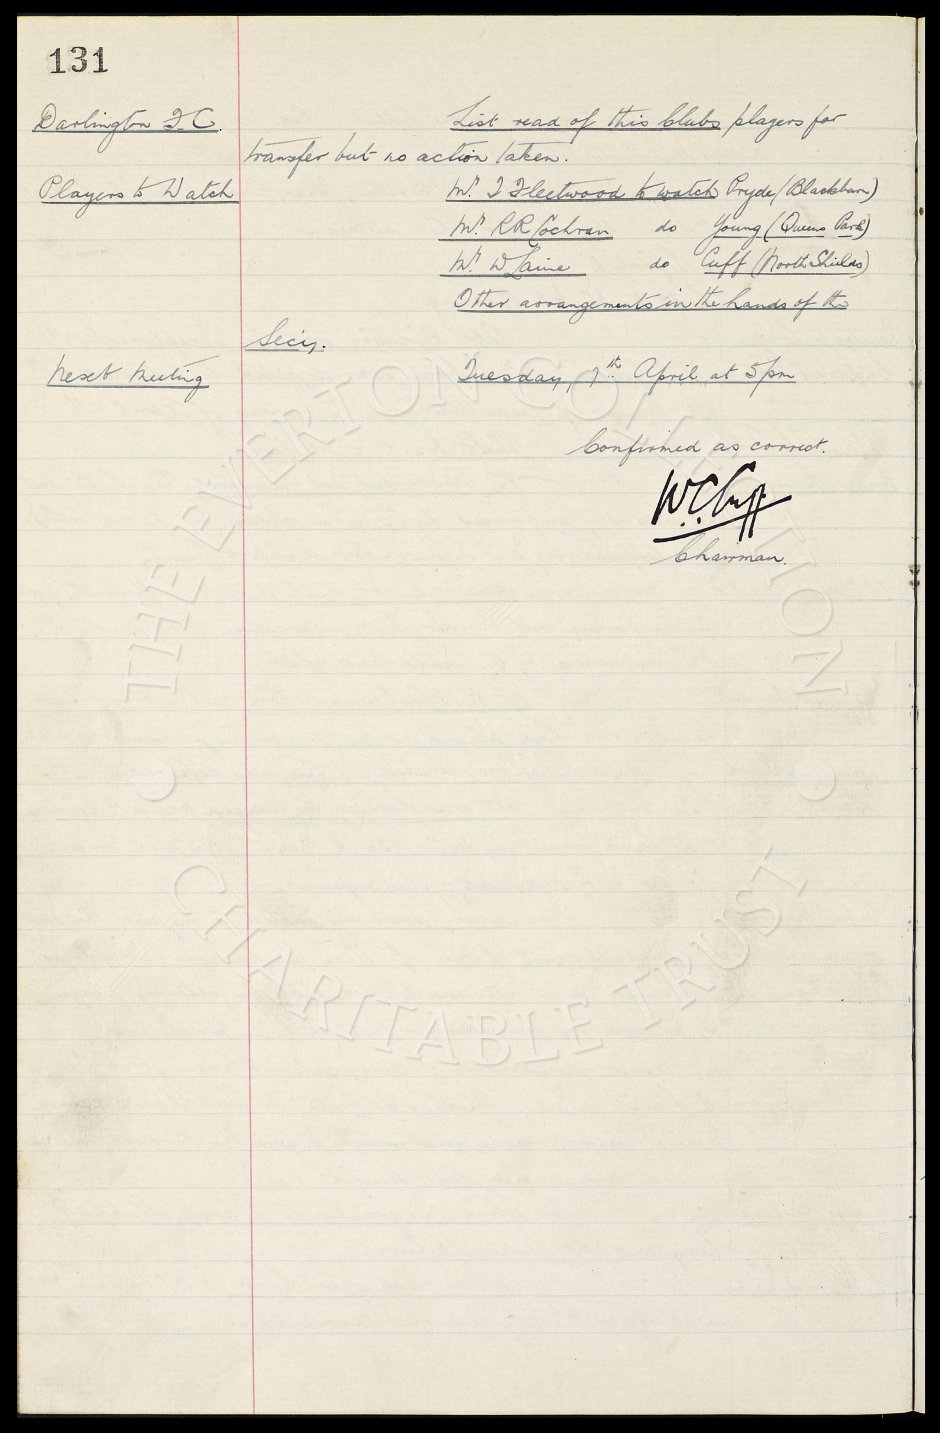 131
Darlington F.C. List read of this Clubs players for
transfer but no action taken.
Players to Watch Mr. T Fleetwood to watch Pryde (Blackburn)
Mr. R R Cochran do Young (Queens Park)
Mr. W Laine do Cuff (North Shields)
Other arrangements in the hands of the
Secy.
Next Meeting Tuesday, 7th April at 5pm
Confirmed as correct.
W.C. Cuff
Chairman.
THE EVERTON COLLECTION
CHARITABLE TRUST